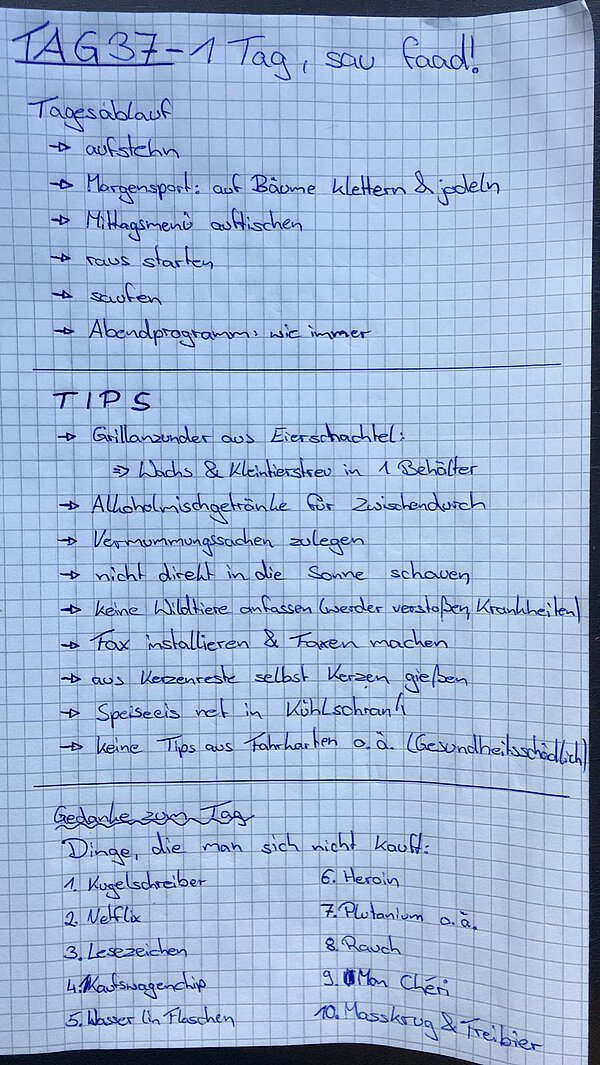 TAG37-1 Tag, sau faad!
Tagesablauf
→ aufstehn
→ Morgensport: auf Bäume klettern & jodeln
→ Mittagsmenü auftischen
→ raus starten
→ saufen
→ Abendprogramm: wie immer
TIPS
→ Grillanzünder aus Eierschachtel:
⇒ Wachs & Kleintierstreu in 1 Behälter
→ Alkoholmischgetränke für Zwischendurch
→ Vermummungssachen zulegen
→ nicht direkt in die Sonne schauen
→ keine Wildtiere anfassen (werder verstoßen, Krankheiten)
→ Fax installieren & Faxen machen
→ aus Kerzenreste selbst Kerzen gießen
→ Speiseeis net in Kühlschrank
→ keine Tips aus Fahrkarten o.ä. (Gesundheitsschädlich)
Gedanke zum Tag
Dinge, die man sich nicht kauft:
1. Kugelschreiber
2. Netflix
3. Lesezeichen
4. Kaufswagenchip
5. Wasser (in Flaschen
6. Heroin
7. Plutanium o.ä.
8. Rauch
9. Mon Chéri
10. Masskrug & Freibier